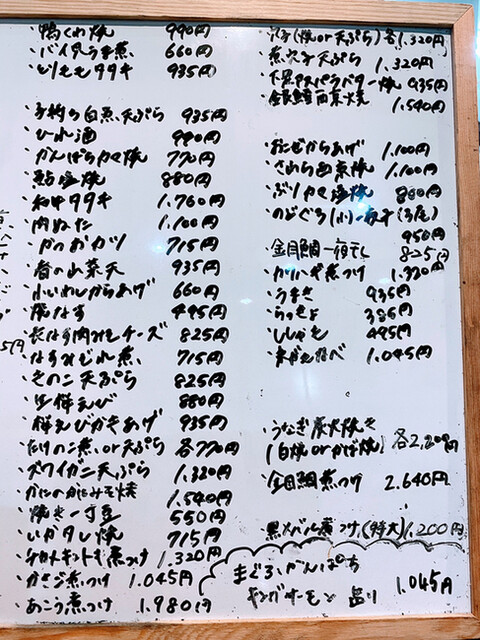 鴨くわ焼 990円
バイ貝うま煮 660円
とりももタタキ 935円
子持の白魚天ぷら 935円
ひれ酒 990円
かんぱちカマ焼 770円
鮎塩焼 880円
和牛タタキ 1.760円
肉ぬた 1.100円
かつおカツ 715円
春の山菜天 935円
小いわしからあげ 660円
焼なす 495円
長なす肉みそチーズ 825円
なすみぞれ煮 715円
きのこ天ぷら 825円
生桜えび 880円
桜えびかきあげ 935円
たけのこ煮.or天ぷら 各770円
ズワイガニ天ぷら 1.320円
かにのかにみそ焼 1.540円
焼き一寸豆 550円
いかタレ焼 715円
チカメキントキ煮つけ 1.320円
かさご煮つけ 1.045円
あこう煮つけ 1.980円
(焼or天ぷら)各1.320円
煮穴子天ぷら 1.320円
アスパラバター焼 935円
銀鱈西京焼 1.540円
おこぜからあげ 1.100円
さわら西京焼 1.100円
ぶりカマ塩焼 880円
のどぐろ(小)一夜干(3尾) 950円
金目鯛一夜干し 825円
カワハギ煮つけ 1.320円
うまき 935円
らっきょ 385円
ししゃも 495円
1.045円
うなぎ炭火焼き
(白焼orかば焼) 各2.200円
金目鯛煮つけ 2.640円
黒メバル煮つけ(特大)1,200円
まぐろ、かんぱち
キングサーモン 造り 1.045円
5円